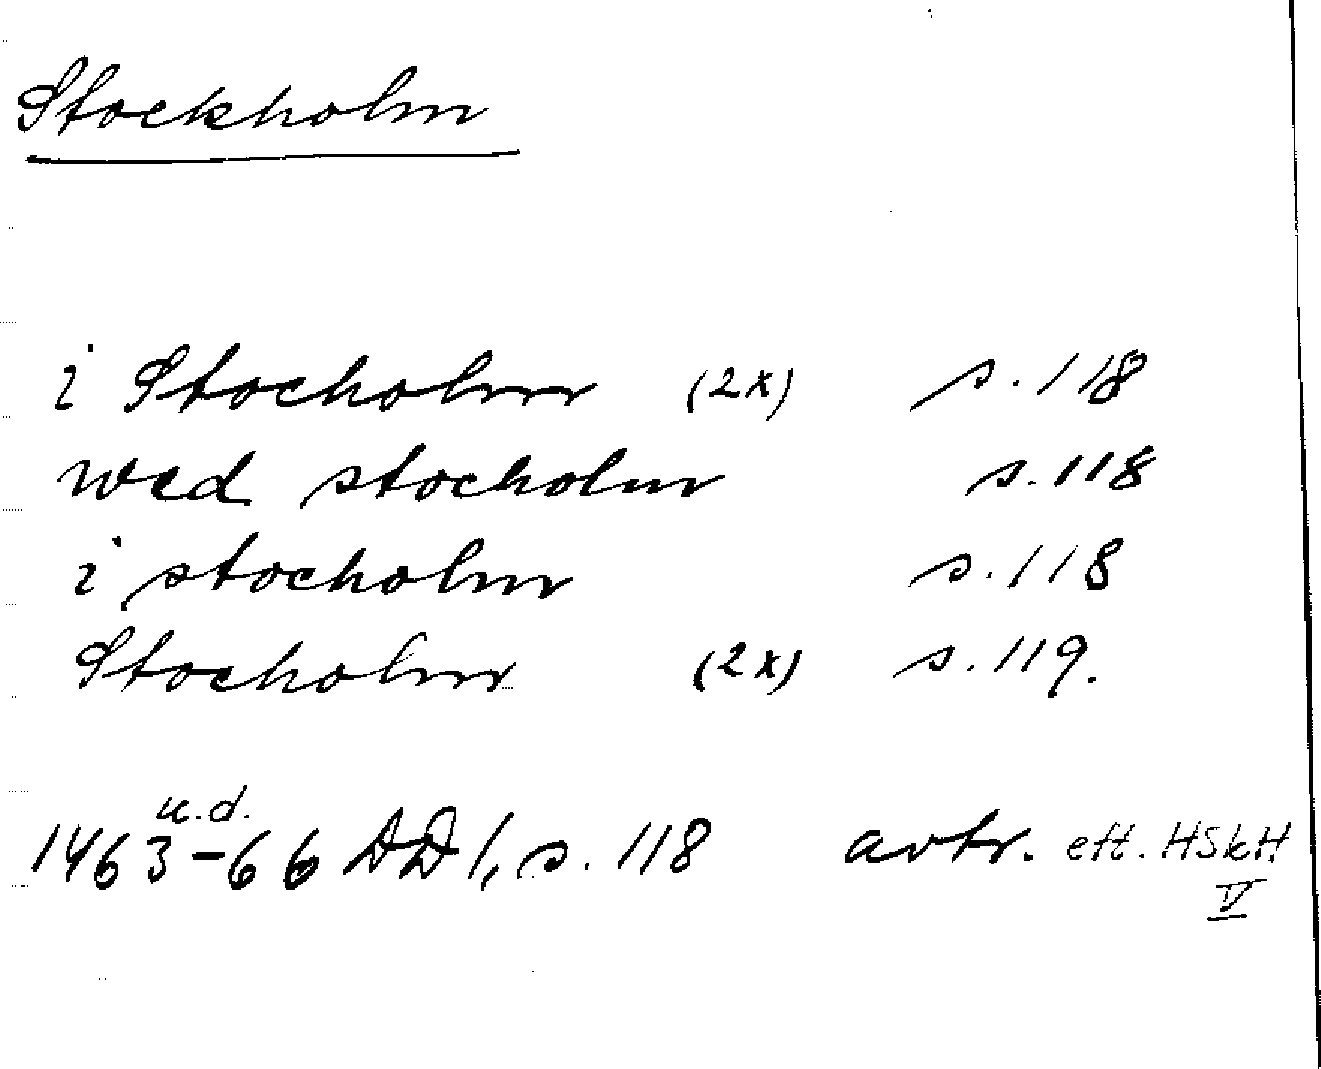 Stockholm
i Stocholm (2x) s. 118
wed stocholm s. 118
i stocholm s. 118
Stocholm (2x) s. 119.
u.d.
1463-66 DD 1, s. 118 avtr. eft. HSkH
V